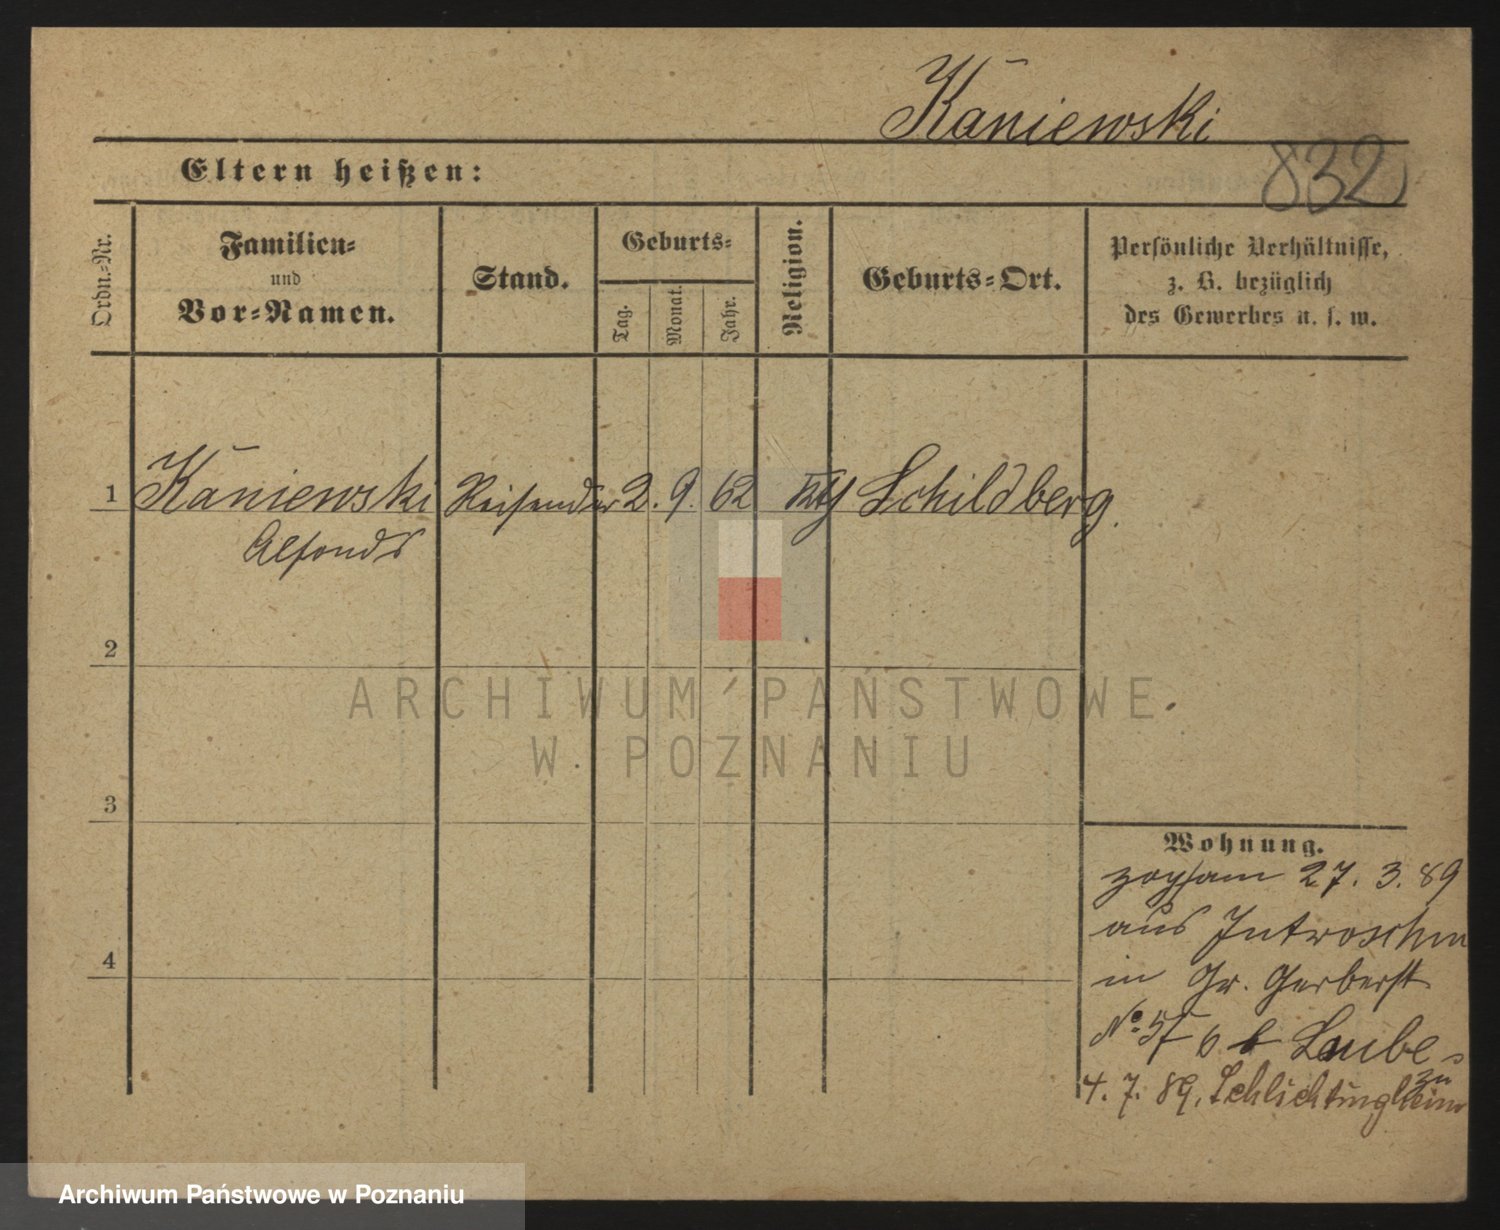 Kaniewski
832
Eltern heißen:
Ordn.-Nr.
Familien-
und
Vor-Namen.
Stand.
Geburts-
Tag.
Monat.
Jahr.
Religion.
Geburts-Ort.
Persönliche Verhältnisse,
z. B. bezüglich
des Gewerbes u. s. w.
1 Kaniewski Reisender 2. 9. 62 Schildberg.
Alfonds
2
3
4
Wohnung.
27. 3. 89
aus Jutroschin
in Gr. Gerberst
No. b Laube
4. 7. 89. zu
Schlichtingsheim
ARCHIWUM PAŃSTWOWE
W POZNANIU
Archiwum Państwowe w Poznaniu